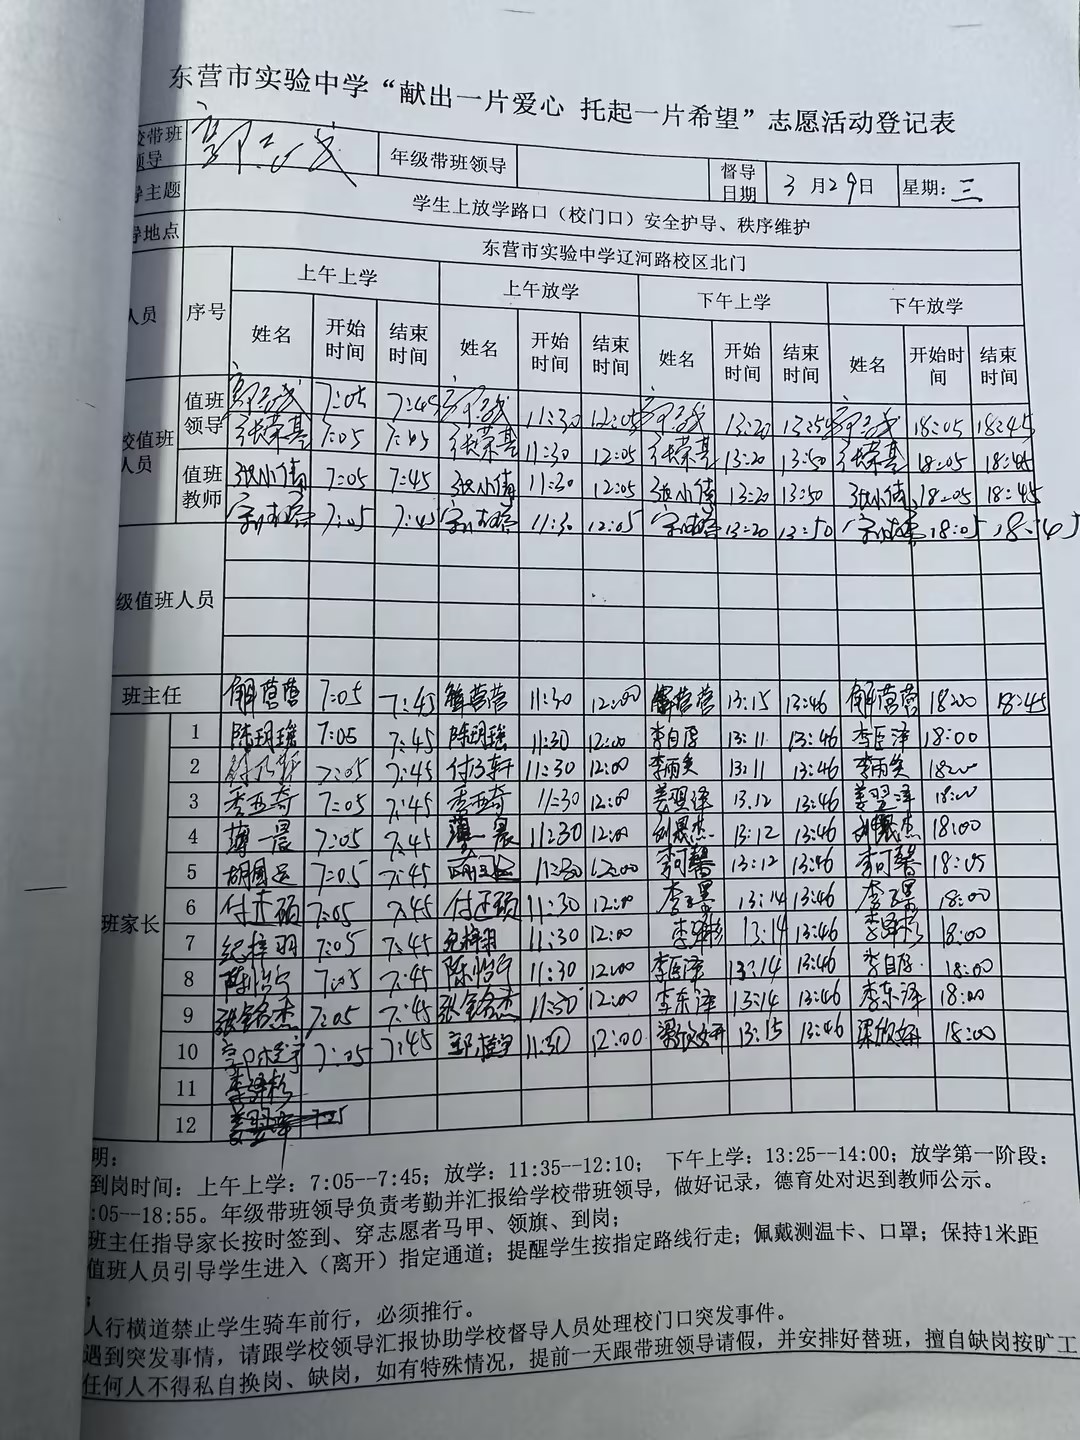 东营市实验中学“献出一片爱心 托起一片希望”志愿活动登记表
校带班领导 年级带班领导 督导日期 3月29日 星期:三
导主题 学生上放学路口（校门口）安全护导、秩序维护
导地点 东营市实验中学辽河路校区北门
人员 序号 上午上学 上午放学 下午上学 下午放学
姓名 开始时间 结束时间 姓名 开始时间 结束时间 姓名 开始时间 结束时间 姓名 开始时间 结束时间
校值班人员 值班领导 7:05 7:45 11:30 12:05 13:20 13:50 18:05 18:45
张荣基 7:05 7:45 张荣基 11:30 12:05 张荣基 13:20 13:50 张荣基 18:05 18:45
值班教师 张小倩 7:05 7:45 张小倩 11:30 12:05 张小倩 13:20 13:50 张小倩 18:05 18:45
7:05 7:45 11:30 12:05 13:20 13:50 18:05 18:45
级值班人员
班主任 解营营 7:05 7:45 解营营 11:30 12:00 解营营 13:15 13:46 解营营 18:00 18:45
班家长
1 陈玥瑶 7:05 7:45 陈玥瑶 11:30 12:00 李自厚 13:11 13:46 李臣泽 18:00
2 付乃轩 7:05 7:45 付乃轩 11:30 12:00 李雨奂 13:11 13:46 李雨奂 18:00
3 季亚奇 7:05 7:45 季亚奇 11:30 12:00 姜翌泽 13:12 13:46 姜翌泽 18:00
4 薄一晨 7:05 7:45 薄一晨 11:30 12:00 13:12 13:46 18:00
5 7:05 7:45 11:30 12:00 李可馨 13:12 13:46 李可馨 18:05
6 7:05 7:45 11:30 12:00 13:14 13:46 18:00
7 纪梓羽 7:05 7:45 纪梓羽 11:30 12:00 13:14 13:46 18:00
8 陈怡宁 7:05 7:45 陈怡宁 11:30 12:00 李臣泽 13:14 13:46 李自厚 18:00
9 张铭杰 7:05 7:45 张铭杰 11:30 12:00 李东泽 13:14 13:46 李东泽 18:00
10 7:05 7:45 11:30 12:00 梁欣妍 13:15 13:46 梁欣妍 18:00
11
12 姜翌泽 7:05
明:
到岗时间：上午上学：7:05--7:45；放学：11:35--12:10； 下午上学：13:25--14:00；放学第一阶段：
:05--18:55。年级带班领导负责考勤并汇报给学校带班领导，做好记录，德育处对迟到教师公示。
班主任指导家长按时签到、穿志愿者马甲、领旗、到岗；
值班人员引导学生进入（离开）指定通道；提醒学生按指定路线行走；佩戴测温卡、口罩；保持1米距
；
人行横道禁止学生骑车前行，必须推行。
遇到突发事情，请跟学校领导汇报协助学校督导人员处理校门口突发事件。
任何人不得私自换岗、缺岗，如有特殊情况，提前一天跟带班领导请假，并安排好替班，擅自缺岗按旷工